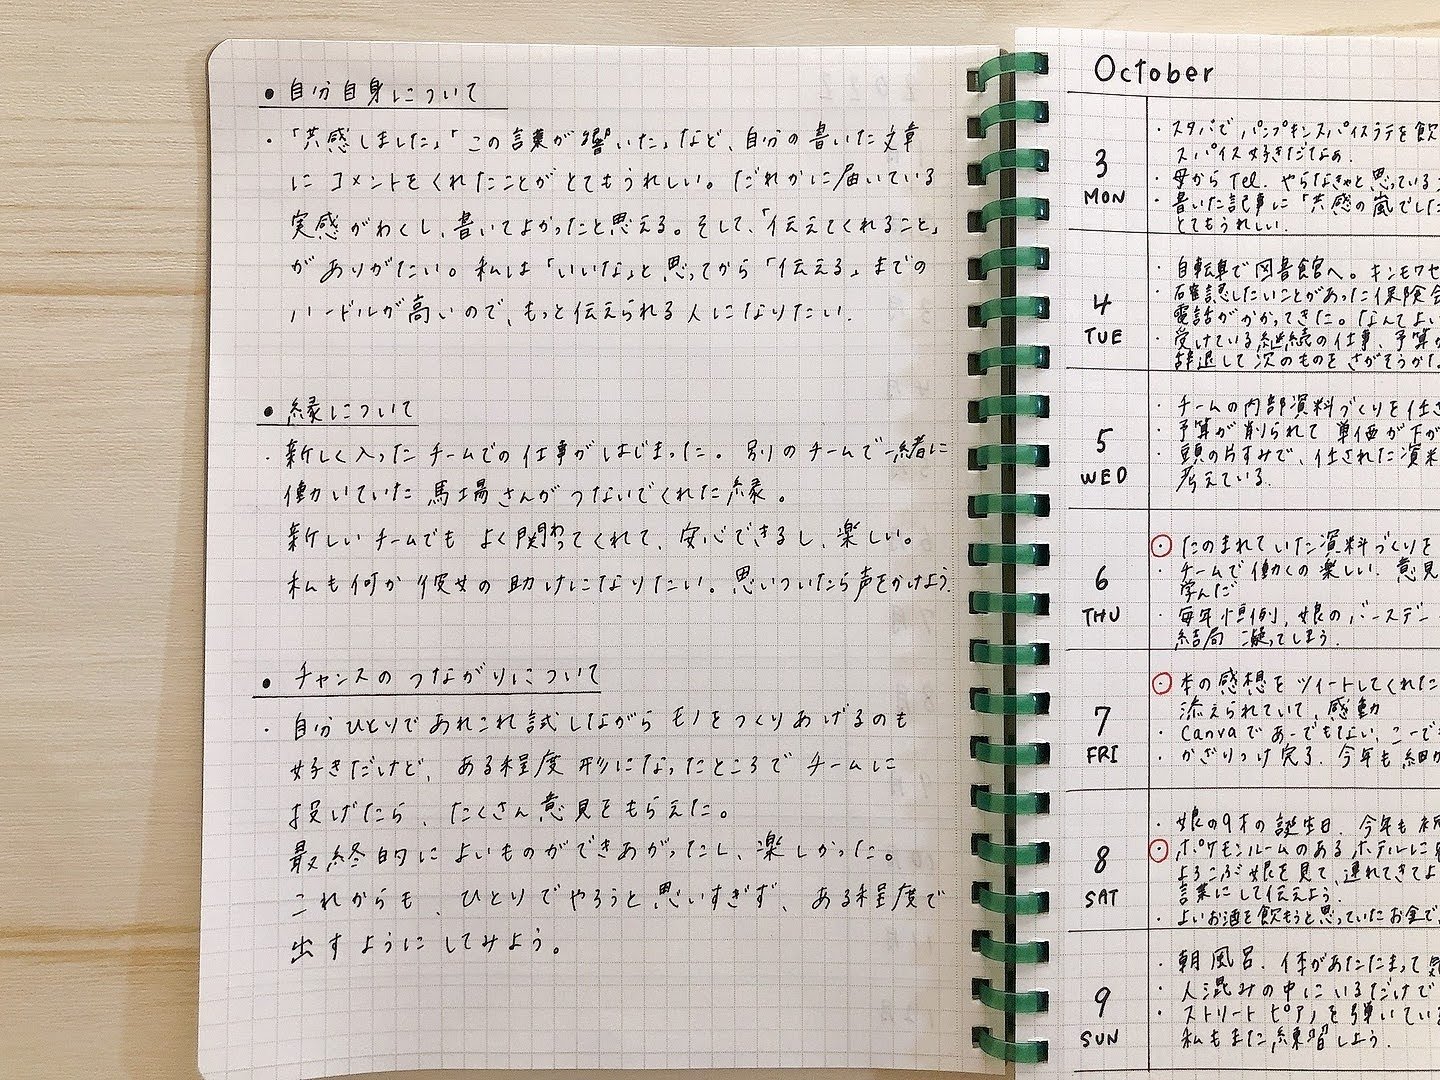 • 自分自身について
・「共感しました」「この言葉が響いた」など、自分の書いた文章
にコメントをくれたことがとてもうれしい。だれかに届いている
実感がわくし、書いてよかったと思える。そして、「伝えてくれること」
がありがたい。私は「いいな」と思ってから「伝える」までの
ハードルが高いので、もっと伝えられる人になりたい.
• 縁について
・新しく入ったチームでの仕事がはじまった。別のチームで一緒に
働いていた馬場さんがつないでくれた縁。
新しいチームでもよく関わってくれて、安心できるし、楽しい。
私も何か彼女の助けになりたい。思いついたら声をかけよう.
• チャンスのつながりについて
・自分ひとりであれこれ試しながらモノをつくりあげるのも
好きだけど、ある程度形になったところでチームに
投げたら、たくさん意見をもらえた。
最終的によいものができあがったし、楽しかった。
これからも、ひとりでやろうと思いすぎず、ある程度で
出すようにしてみよう。
October
3
MON
・スタバでパンプキンスパイスラテを飲
スパイス好きだなぁ.
・母からTel. やらなきゃと思っている
・書いた記事に「共感の嵐でした
とてもうれしい.
4
TUE
・自転車で図書館へ。キンモクセ
・確認したいことがあった保険会
電話がかかってきた。なんてよい
・受けている継続の仕事、予算が
辞退して次のものをさがそうかな
5
WED
・チームの内部資料づくりを任さ
・予算が削られて単価が下が
・頭の片すみで、任された資料
考えている.
6
THU
・たのまれていた資料づくりを
・チームで働くの楽しい. 意見
学んだ
・毎年恒例、娘のバースデー
結局凝ってしまう.
7
FRI
・本の感想をツイートしてくれた
添えられていて、感動
・Canvaであーでもない、こーで
・かざりつけ完了. 今年も細か
8
SAT
・娘の9才の誕生日. 今年も
・ポケモンルームのあるホテルに
よろこぶ娘を見て、連れてきてよ
言葉にして伝えよう.
・よいお酒を飲もうと思っていたお金で、
9
SUN
・朝風呂. 体があたたまって気
・人混みの中にいるだけで
・ストリートピアノを弾いてい
私もまた練習しよう.